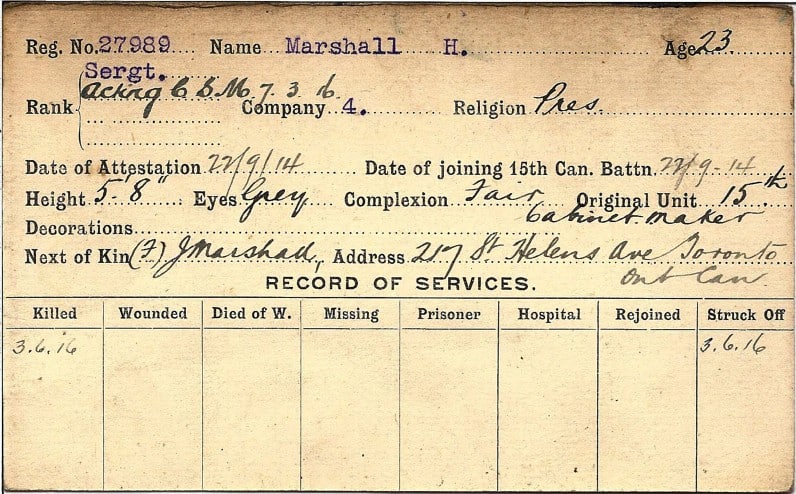 Reg. No. 27989 Name Marshall H. Age 23
Sergt.
Rank Acting C S M 7.3.16 Company 4. Religion Pres.
Date of Attestation 22/9/14 Date of joining 15th Can. Battn. 22/9-14
Height 5'8" Eyes Grey Complexion Fair Original Unit 15th
Decorations Cabinet maker
Next of Kin (F) J Marshall, Address 217 St Helens Ave Toronto
Ont Can
RECORD OF SERVICES.
Killed Wounded Died of W. Missing Prisoner Hospital Rejoined Struck Off
3.6.16 3.6.16